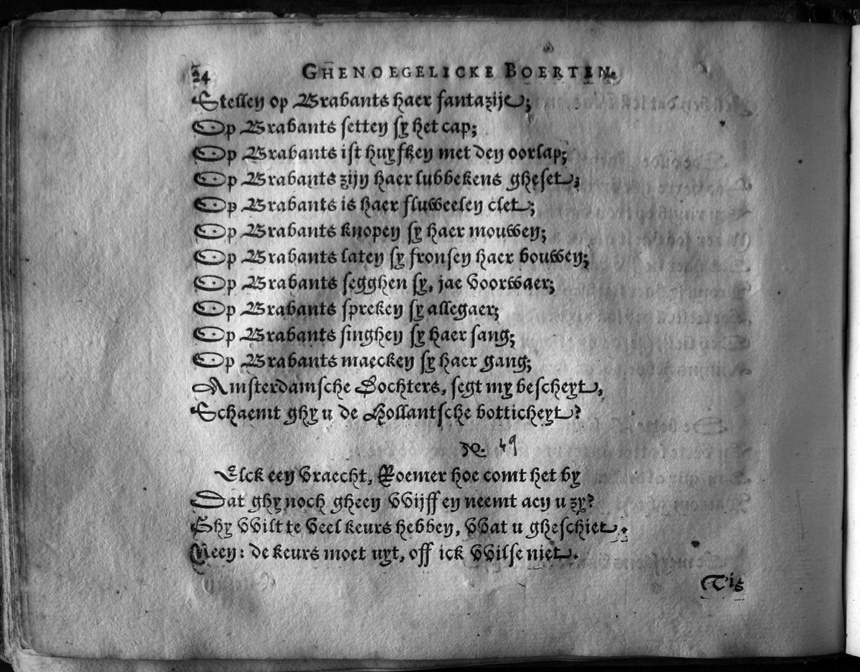 24 GHENOEGELICKE BOERTEN.
Stellen op Brabants haer fantazije;
Op Brabants setten sy het cap;
Op Brabants ist huyfken met den oorlap;
Op Brabants zijn haer lubbekens gheset;
Op Brabants is haer fluweelen clet;
Op Brabants knopen sy haer mouwen;
Op Brabants laten sy fronsen haer bouwen;
Op Brabants segghen sy, jae voorwaer;
Op Brabants spreken sy allegaer;
Op Brabants singhen sy haer sang;
Op Brabants maecken sy haer gang;
Amsterdamsche Dochters, segt my bescheyt,
Schaemt ghy u de Hollantsche botticheyt?
49
Elck een vraecht, Roemer hoe comt het by
Dat ghy noch gheen VVijff en neemt aen u zy?
Ghy VVilt te veel keurs hebben, VVat u gheschiet.
Neen: de keurs moet uyt, off ick VVilse niet.
Tis